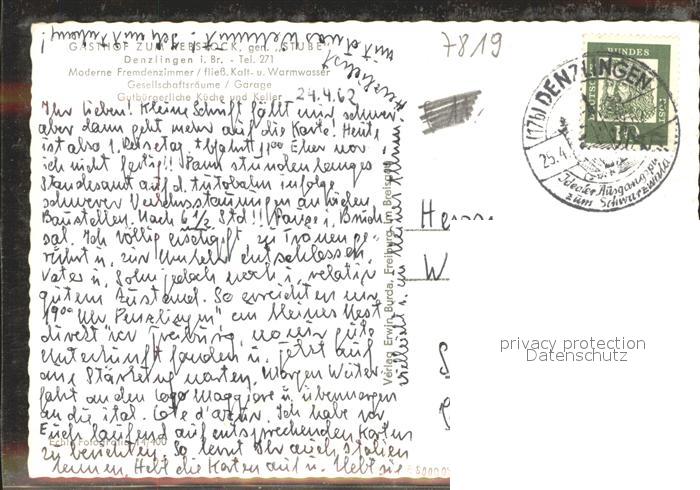 GASTHOF ZUM REBSTOCK, gen. „STUBE"
Denzlingen i. Br. - Tel. 271
Moderne Fremdenzimmer / fließ. Kalt- u. Warmwasser
Gesellschaftsräume / Garage
Gutbürgerliche Küche und Keller
24.4.62
Ihr Lieben! Kleine Schrift fällt mir schwer,
aber dann geht mehr auf die Karte! Heute
ist also 1. Reisetag. Abfahrt 11⁰⁰ Eher war
ich nicht fertig!! Dann stundenlanges
auf d. Autobahn infolge
schwerer Verkehrsstauungen an vielen
Baustellen. Nach 6 1/2 Std!! Pause i. Bruch-
sal. Ich völlig zu Tränen ge-
rührt u. zur Umkehr entschlossen,
Vater u. Sohn jedoch noch i. relativ
gutem Zustand. So erreichten wir
19⁰⁰ Uhr Denzlingen" ein kleines Nest
direkt vor Freiburg, wo wir gute
Unterkunft fanden u. jetzt auf
eine Stärkung warten. Morgen Weiter-
fahrt an den Lago Maggiore u. übermorgen
an die ital. Cote d'azur. Ich habe vor,
Euch laufend auf entsprechenden Karten
zu berichten. So lernt Ihr auch Italien
kennen. Hebt die Karten auf u. klebt sie
vielleicht i. ein kleines Album
Echte Fotografie
Verlag Erwin Burda, Freiburg im Breisgau
7819
BUNDES
DEUTSCHE
POST
10
(17b) DENZLINGEN
25.4.
Idealer Ausgangspu
zum Schwarzwald
Herrn
W
privacy protection
Datenschutz